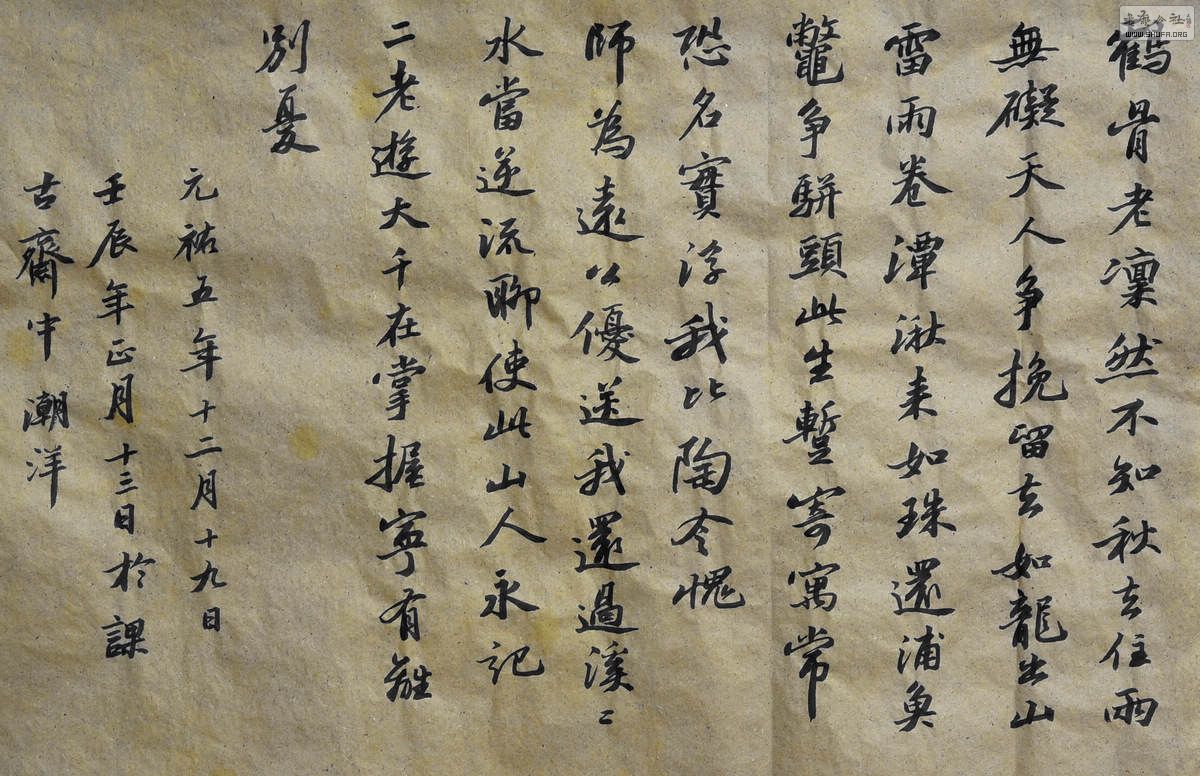 鶴骨老凜然不知秋去住兩
無礙天人爭挽留去如龍出山
雷雨卷潭湫来如珠還浦魚
鼈爭駢頭此生暫寄寓常
恐名實浮我比陶令愧
師為遠公優送我還過溪〻
水當逆流聊使此山人永記
二老遊大千在掌握寧有離
別憂
元祐五年十二月十九日
壬辰年正月十三日於課
古齋中 潮洋
WWW.SHUFA.ORG